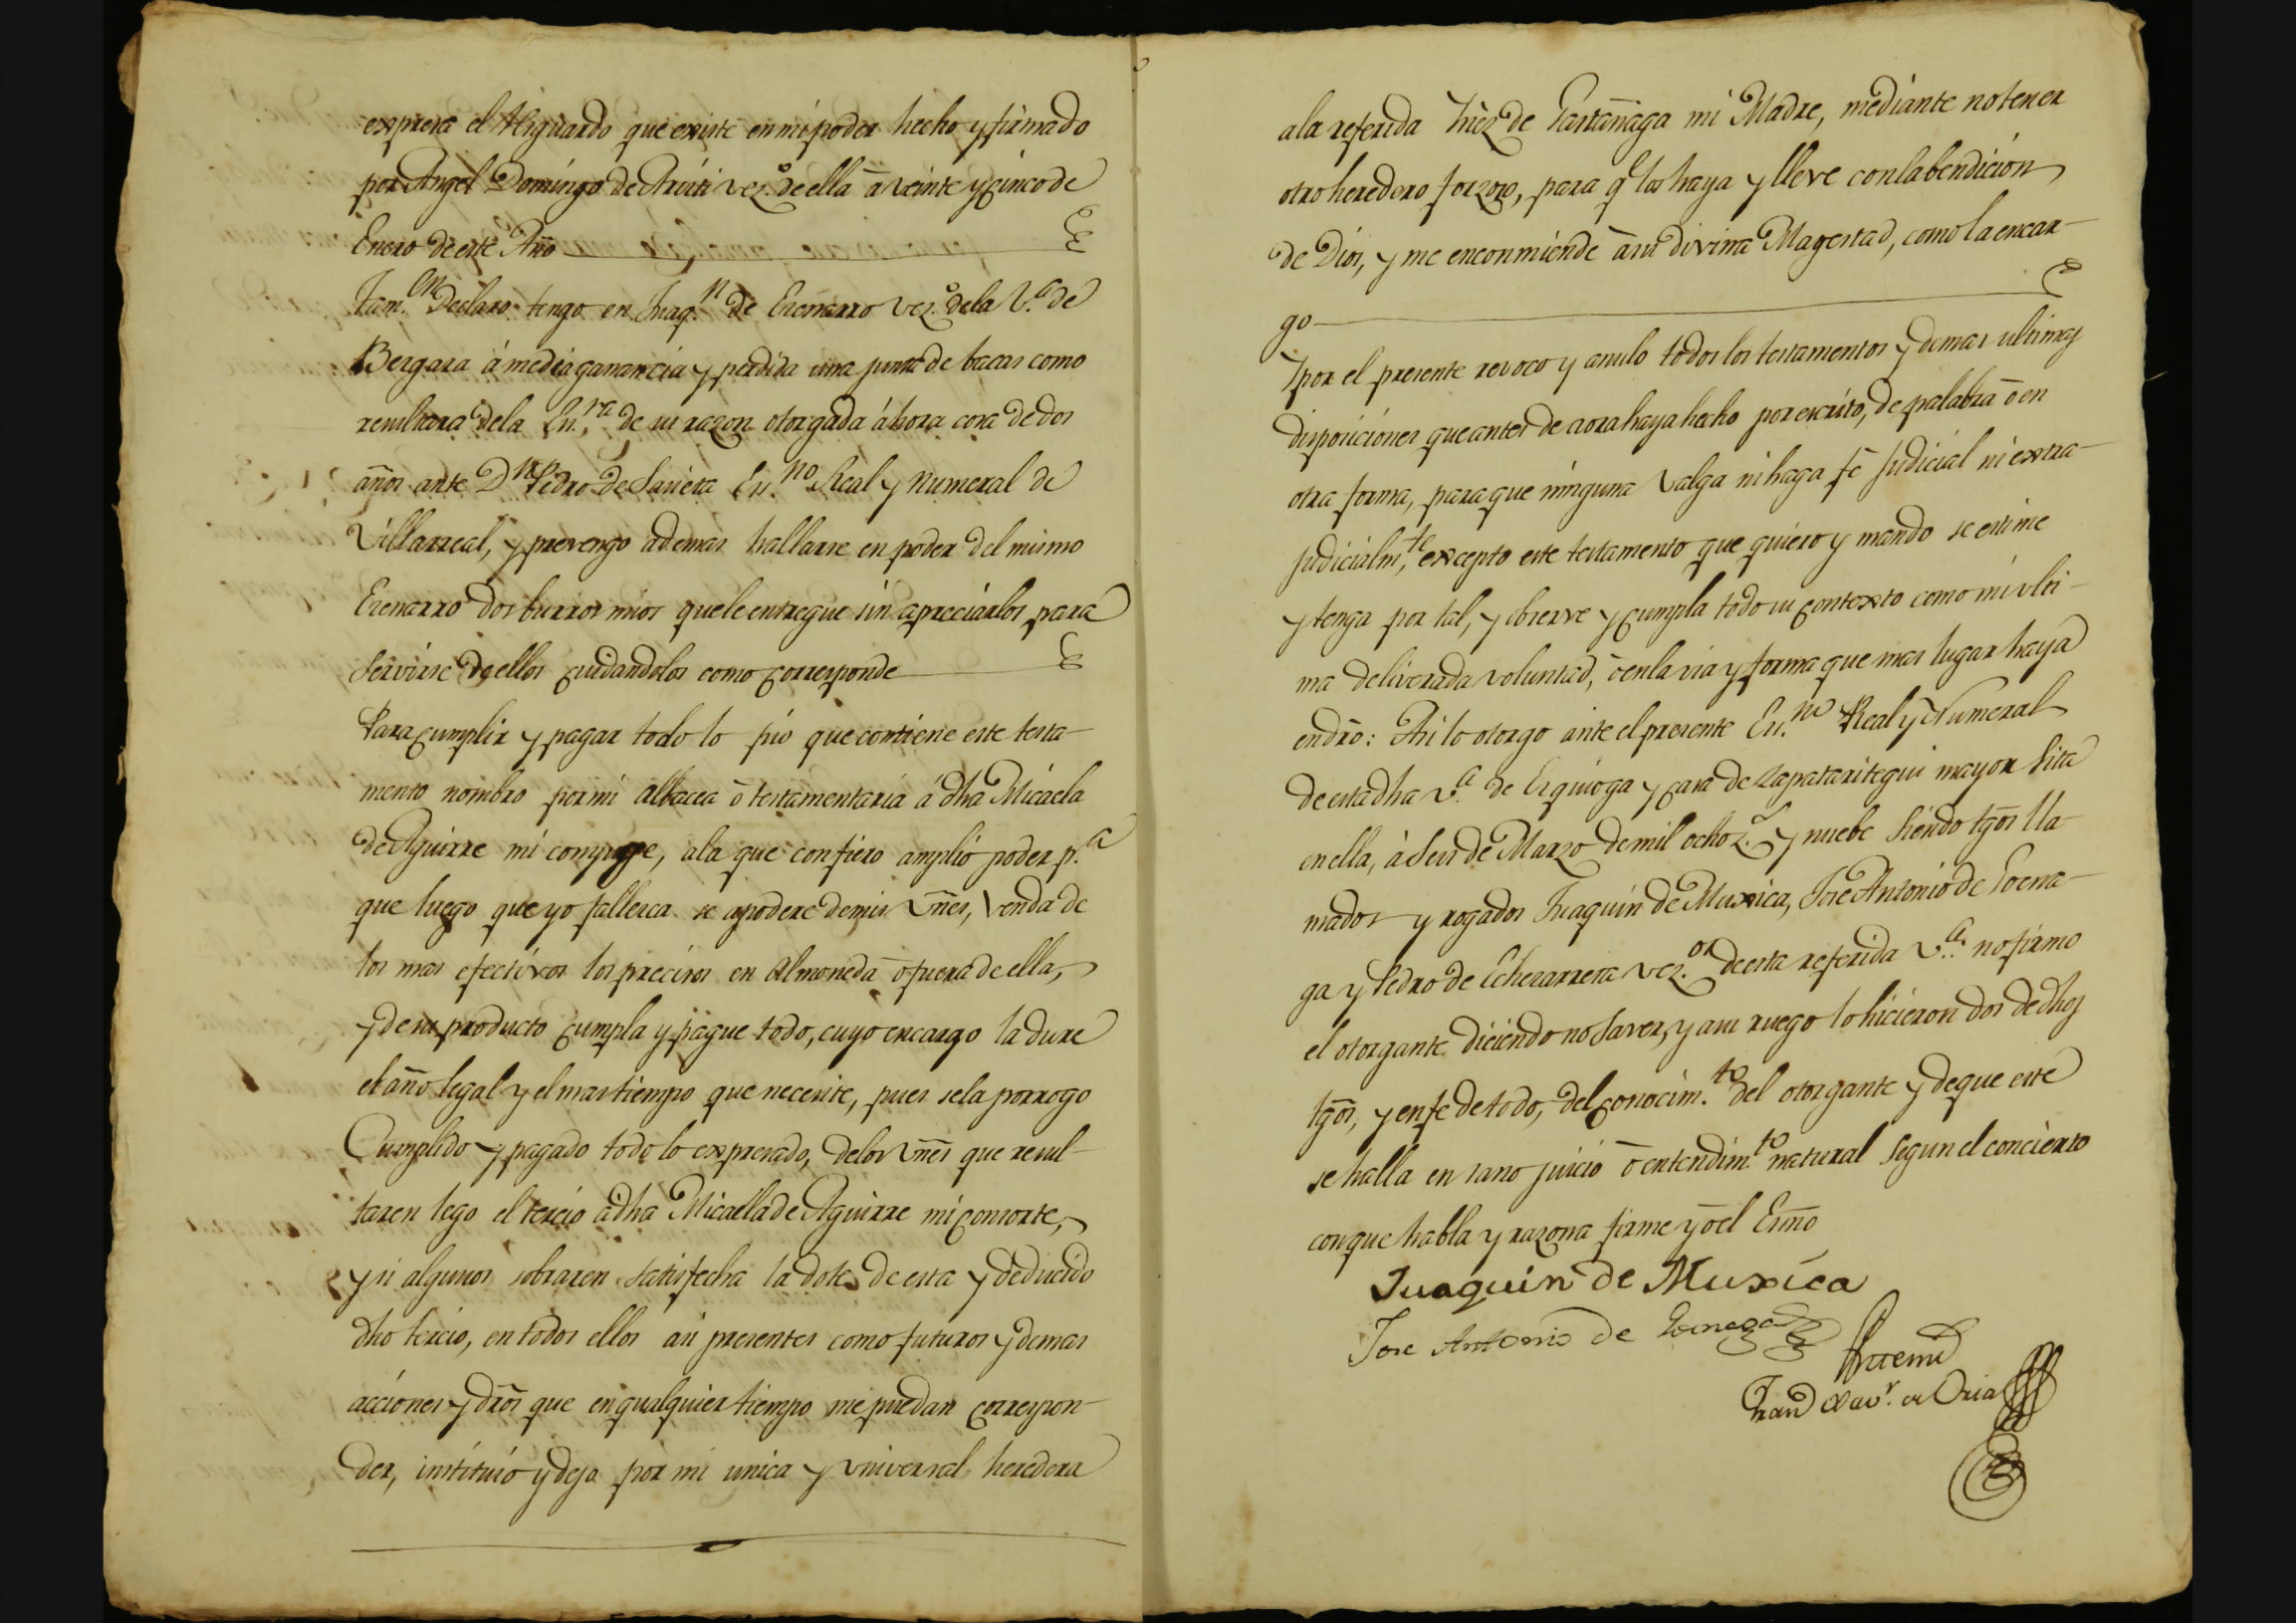 expresa el Resguardo que existe en mi poder hecho y firmado
por Angel Domingo de Aruti vez.º de ella à veinte y cinco de
Enero de este Año
Tam.en Declaro tengo en Juaq.n de Erenarro vez.º de la V.a de
Bergara á media ganancia y perdida una junta de bacas como
resultara de la Es.ra de su razon otorgada áhora cosa de dos
años ante D.n Pedro de Es.no Real y Numeral de
Villarreal, y prevengo ademas hallarse en poder del mismo
Erenarro dos burros mios que le entregue sin apreciarlos para
servirse de ellos cuidandolos como corresponde
Para cumplir y pagar todo lo pio que contiene este testa-
mento nombro por mi albacea ò testamentaria á dha Micaela
de Aguirre mi conyuge, a la que confiero amplio poder p.a
que luego que yo fallesca se apodere de mis vñes, venda de
los mas efectivos los precisos en Almoneda ò fuera de ella,
y de su producto cumpla y pague todo, cuyo encargo la dure
el año legal y el mas tiempo que necesite, pues se la porrogo
Cumplido y pagado todo lo expresado, de los vñes que resul-
taren lego el tercio à dha Micaella de Aguirre mi consorte,
y si algunos sobraren satisfecha la dote de esta y deducido
dho tercio, en todos ellos asi presentes como futuros y demas
acciones y drõs que en qualquier tiempo me puedan correspon-
der, instituio y dejo por mi unica y vniversal heredera
a la referida Ynez de Gastañaga mi Madre, mediante no tener
otro heredero forzoso, para q.e los haya y lleve con la bendicion
de Dios, y me enconmiende à su divina Magestad, como la encar-
go
Y por el presente revoco y anulo todos los testamentos y demas ultimas
disposiciones que antes de aora haya hecho por escrito, de palabra ò en
otra forma, para que ninguna valga ni haga fè Judicial ni extra-
judicialm.te, excepto este testamento que quiero y mando se estime
y tenga por tal, y observe y cumpla todo su contexto como mi ulti-
ma deliverada voluntad, ò en la via y forma que mas lugar haya
en drõ: Asi lo otorgo ante el presente Es.no Real y Numeral
de esta dha v.a de Ezquioga y casa de Zapataritegui mayor sita
en ella, à Seis de Marzo de mil ochoz.s y nuebe siendo tgõs lla-
mados y rogados Juaquin de Muxica, Jose Antonio de Goena-
ga y Pedro de Echezarreta vez.os de esta referida v.a: no firmo
el otorgante diciendo no saver, y a su ruego lo hicieron dos de dhos
tgõs, y en fe de todo, del conocim.to del otorgante y de que este
se halla en sano juicio ò entendim.to natural segun el concierto
con que habla y razona firme yo el Essno
Juaquin de Muxica
Jose Antonio de Goenaga
Ante mi
Fran.co Xav.r de Oria